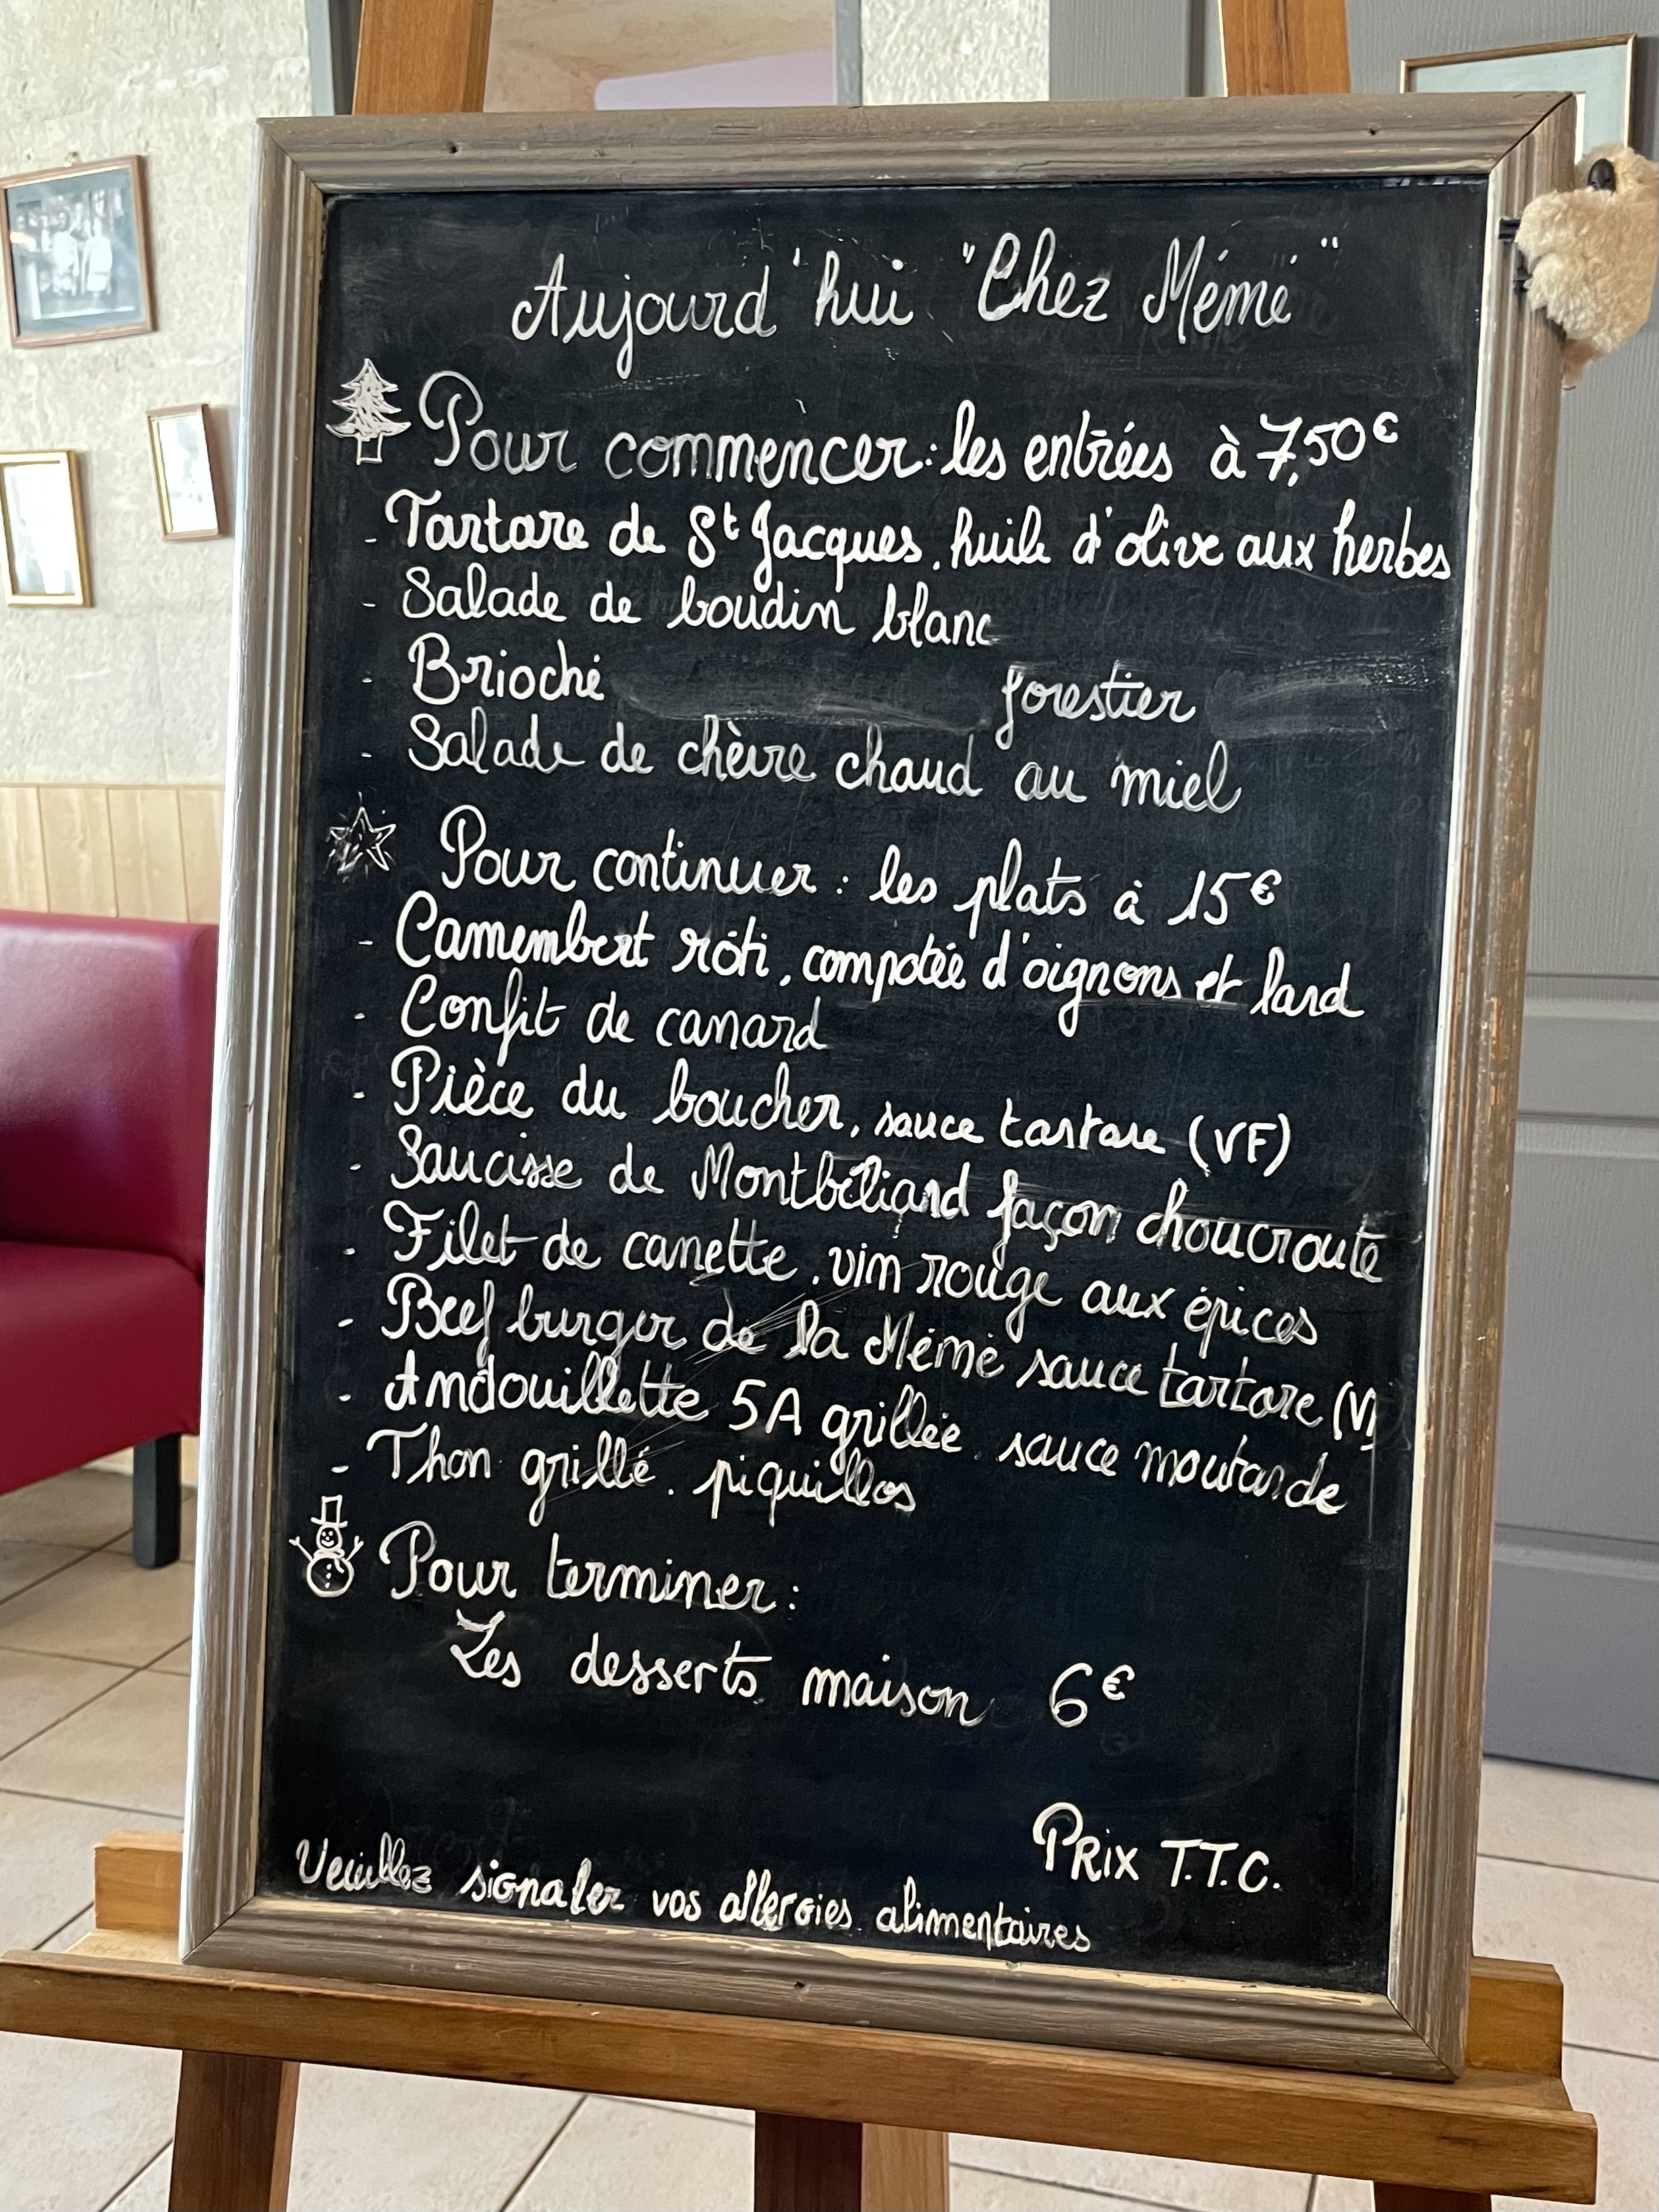 Aujourd'hui "Chez Mémé"
Pour commencer : les entrées à 7,50€
- Tartare de St Jacques, huile d'olive aux herbes
- Salade de boudin blanc
- Brioché forestier
- Salade de chèvre chaud au miel
Pour continuer : les plats à 15€
- Camembert rôti, compotée d'oignons et lard
- Confit de canard
- Pièce du boucher, sauce tartare (VF)
- Saucisse de Montbéliard façon choucroute
- Filet de canette, vin rouge aux épices
- Beef burger de la Mémé sauce tartare (V)
- Andouillette 5A grillée, sauce moutarde
- Thon grillé, piquillos
Pour terminer :
Les desserts maison 6€
Prix T.T.C.
Veuillez signaler vos allergies alimentaires